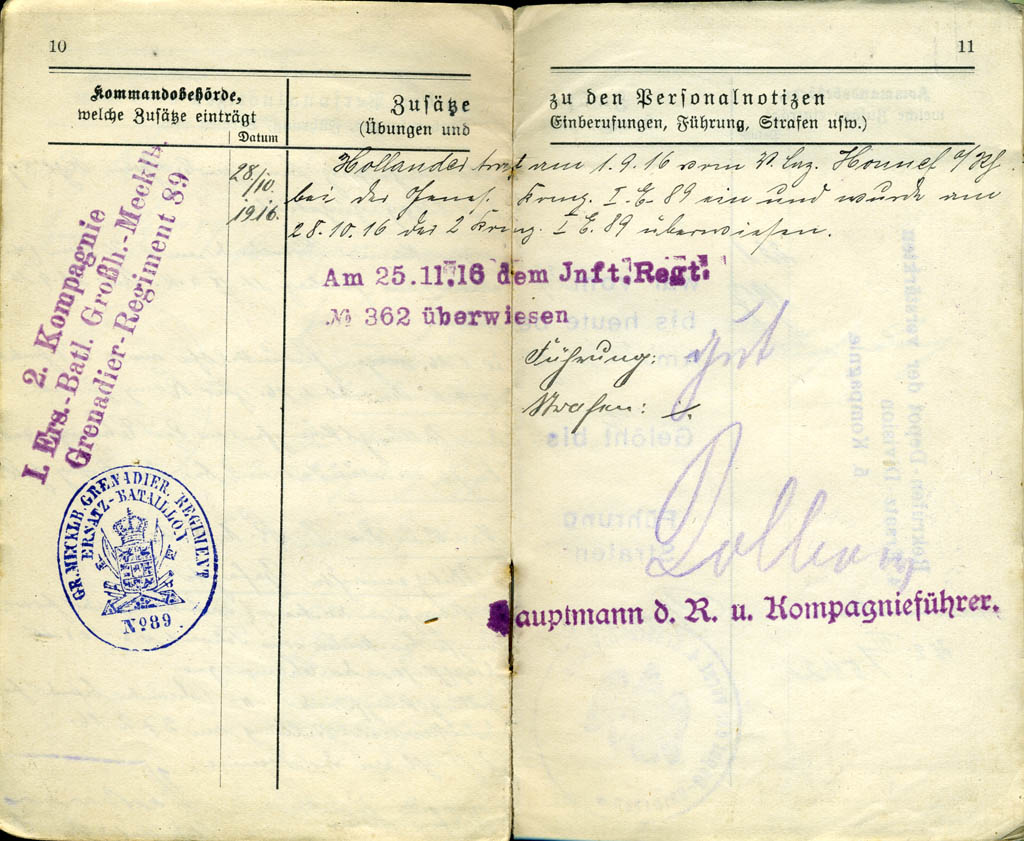 10
11
Kommandobehörde,
welche Zusätze einträgt
Datum
Zusätze zu den Personalnotizen
(Übungen und Einberufungen, Führung, Strafen usw.)
2. Kompagnie
I. Ers.-Batl. Großh.-Mecklb.
Grenadier-Regiment 89
28/10.
1916.
Hollander trat am 1.9.16 vom V. Laz. Honnef a/Rh.
bei der Genes. Komp. I. E. 89 ein und wurde am
28.10.16 der 2 Komp. I E. 89 überwiesen.
Am 25.11.16 dem Jnft. Regt.
№ 362 überwiesen
Führung: gut
Strafen: ./.
Hauptmann d. R. u. Kompagnieführer.
GR. MECKLB. GRENADIER. REGIMENT
ERSATZ-BATAILLON
№ 89